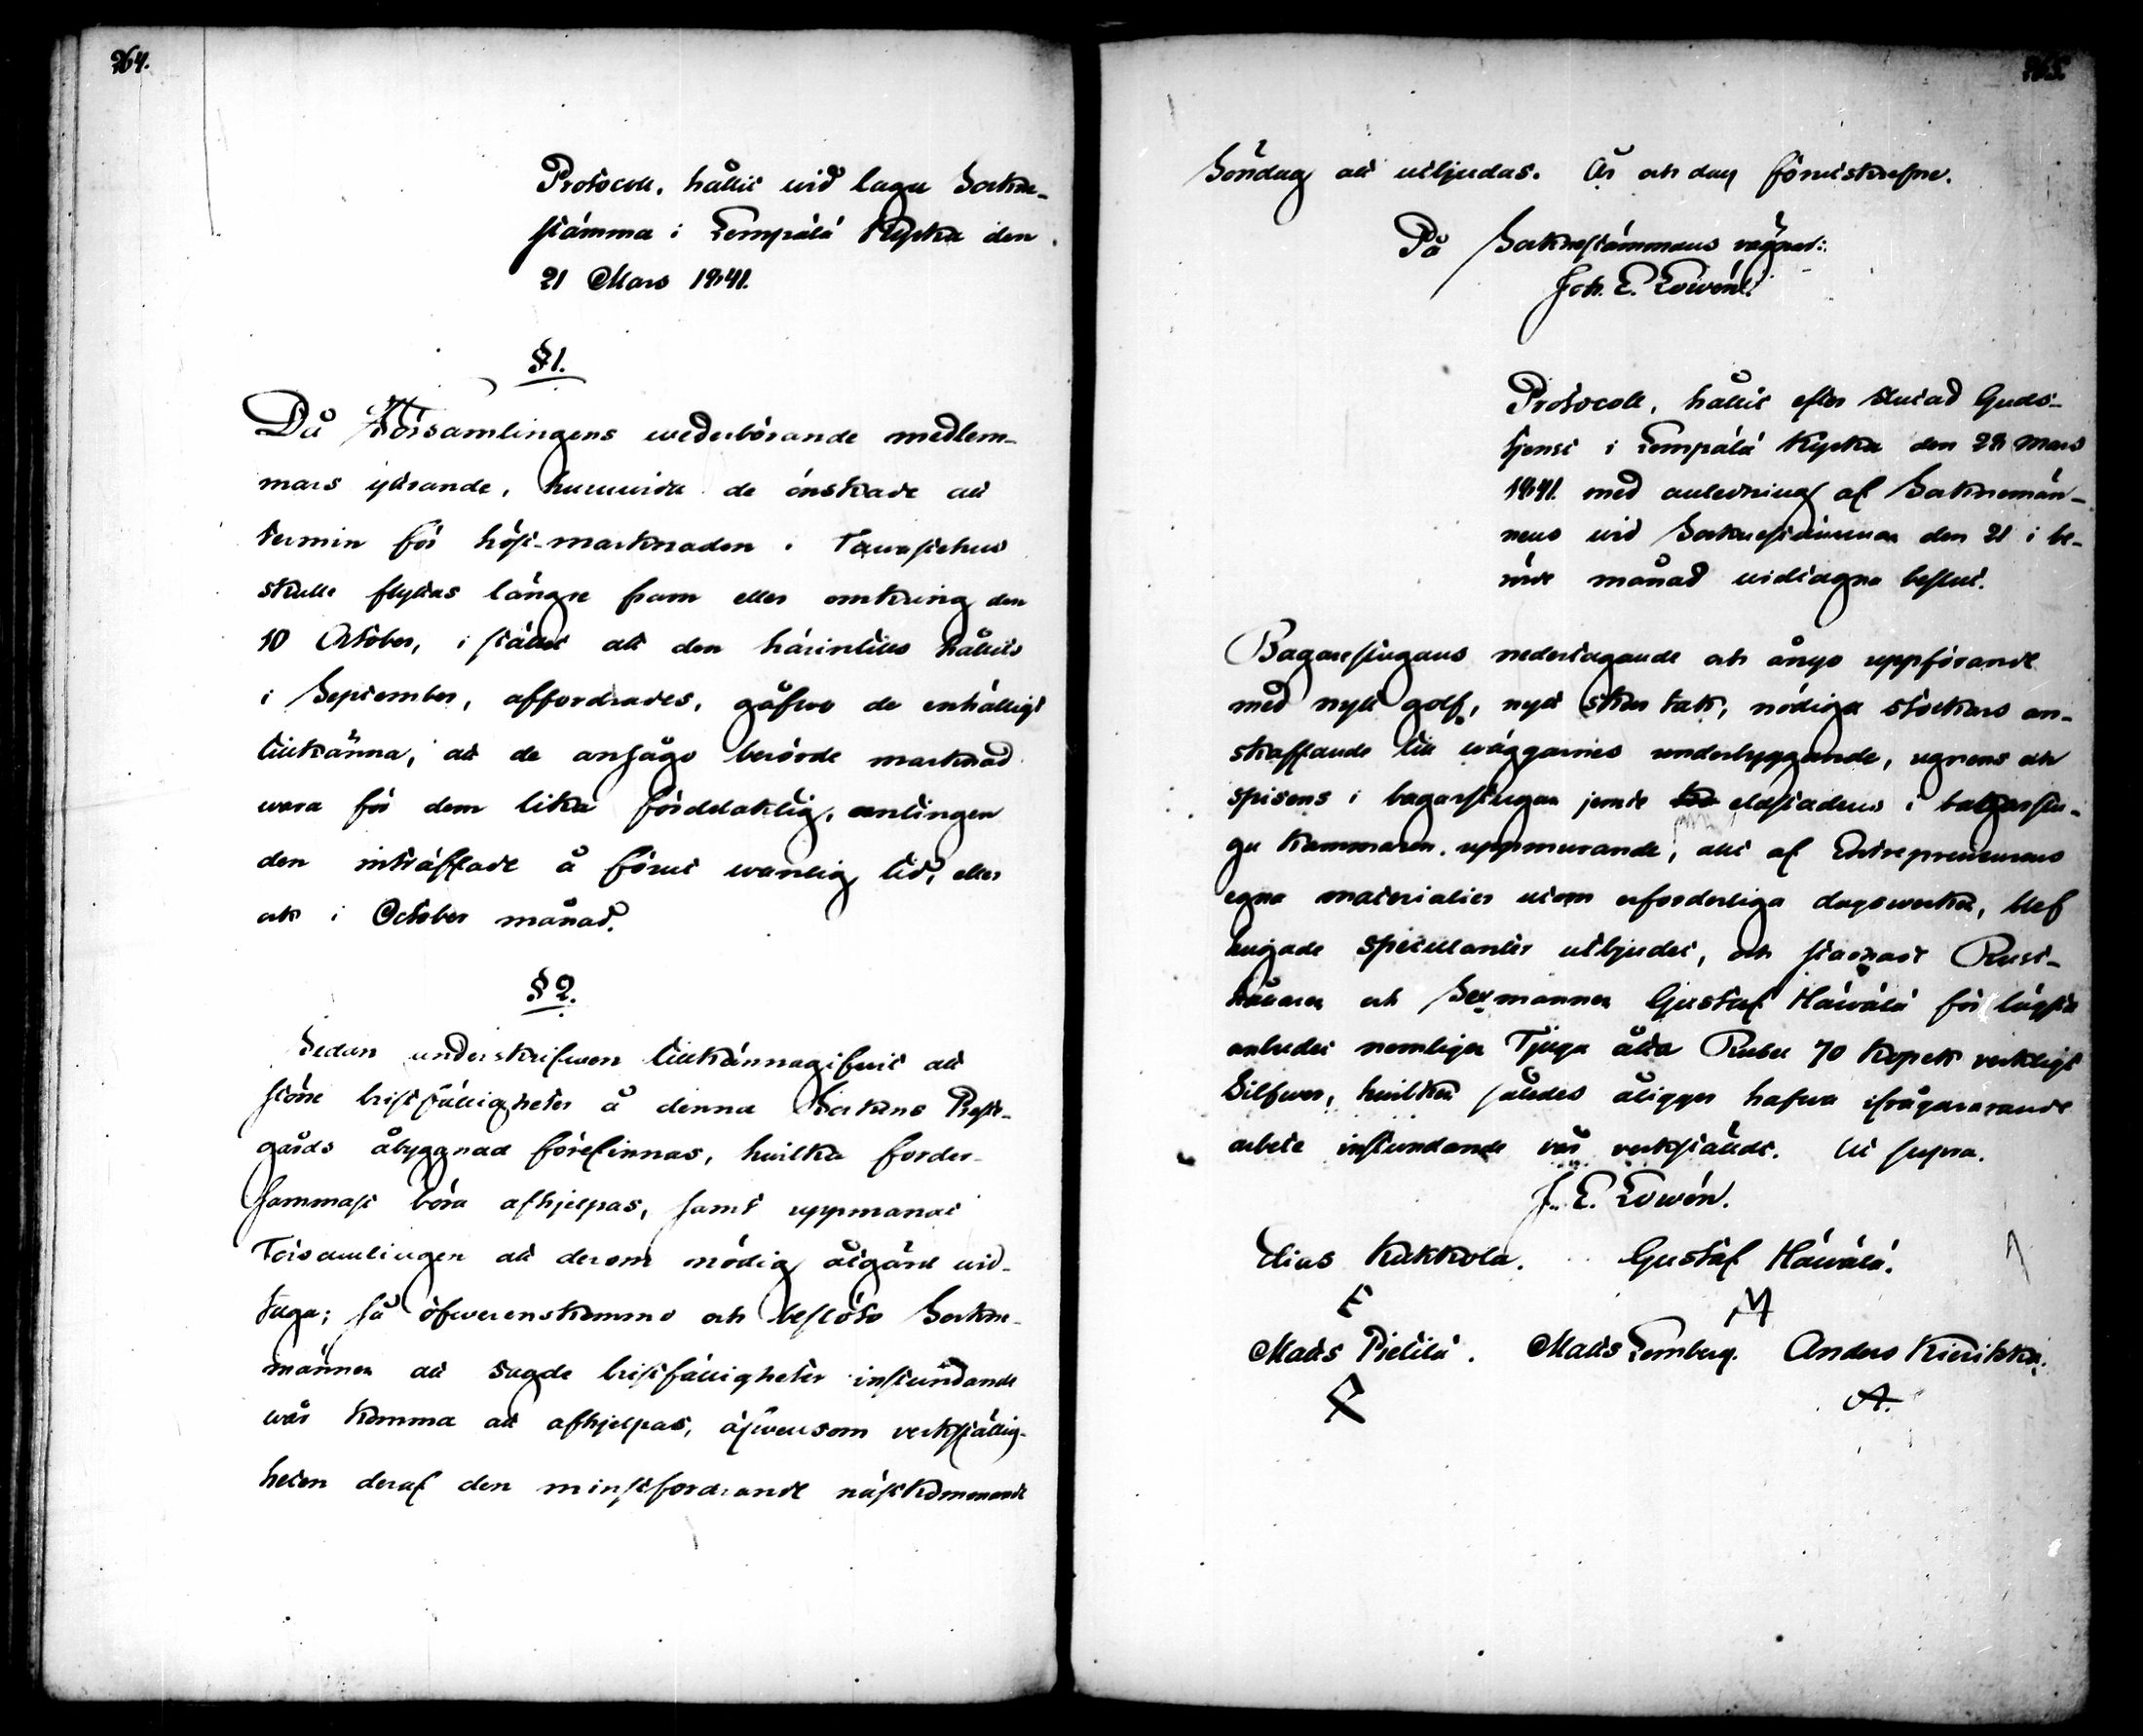 264.
Protocoll, hållit wid laga Sockne-
stämma i Lempälä Kyrka den
21 Mars 1841.
§ 1.
Då Församlingens wederbörande medlem-
mars yttrande, huruvida de önskade att
termin för höst-marknaden i Tawastehus
skulle flyttas längre fram eller omkring den
10 October, i stället att den härintills hållits
i September, affordrades, gåfwo de enhälligt
tillkänna, att de ansågo berörde marknad
wara för dem lika fördelaktig, antingen
den inträffade å förut wanlig tid, eller
ock i October månad.
§ 2.
Sedan underskrifwen tillkännagifwit att
större bristfälligheter å denna Sockens Prest-
gårds åbyggnad förefinnas, hwilka forder-
sammast böra afhjelpas, samt uppmanat
Församlingen att derom nödig åtgärd wid-
taga; så öfwerenskommo och beslöto Sockne-
männen att sagde bristfälligheter instundande
wår komma att afhjelpas, äfwensom verkställig-
heten deraf den minstfordrande nästkommande
265.
Söndag att utbjudas. År och dag förutskrefne.
På Socknestämmans vägnar:
Joh. E. Lowén.
Protocoll, hållit efter slutad Guds-
tjenst i Lempälä Kyrka den 28 Mars
1841 med anledning af Socknemän-
nens wid Socknestämman den 21 i be-
rörde månad widtagne beslut.
Bagarstugans nedertagande och ånyo uppförande
med nytt golf, nytt tak, nödiga stockars an-
skaffande till wäggarnes underbyggande, ugnens och
spisens i bagarstugan jemte eldstadens i bakgarstu-
gu kammaren uppmurande, allt af Entrepreneurens
egna materialier utom erforderliga dagswerken, blef
hugade spekulanter utbjudet, och stadnade Rust-
hållaren och Sexmannen Gustaf Häiwälä för lägsta
anbudet nemligen Tjugu åtta Rubel 70 Kopek verkligt
Silfwer, hwilken således åligger hafwa ifrågavarande
arbete instundande vår verkstäldt. Ut supra.
J. E. Lowén.
Elias Kukkola. Gustaf Häiwälä.
E M
Matts Pietilä. Matts Lemberg. Anders
A.